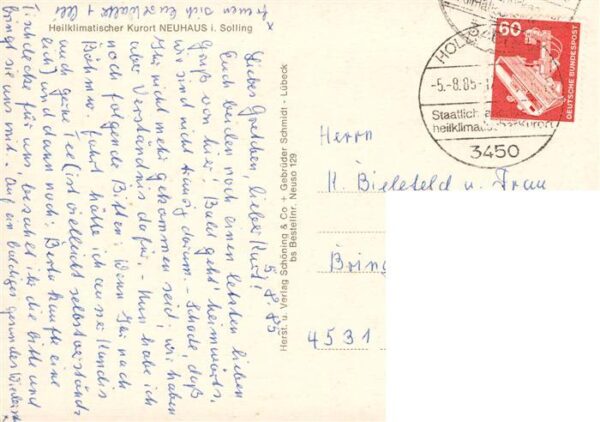 Heilklimatischer Kurort NEUHAUS i. Solling
5.8.85
Liebes Gretchen, lieber Kurt!
Euch beiden noch einen letzten lieben
Gruß von hier! Bald geht's heimwärts,
wir sind nicht traurig darum. - Schade, daß
Ihr nicht mehr gekommen seid, wir haben
aber Verständnis dafür. - Nun habe ich
noch folgende Bitten: Wenn Ihr nach
fahrt hätte ich gerne Kandis
auch Tee (ist vielleicht selbstverständl.
euch) und dann noch: Berta kaufte eine
Tischdecke für uns, bezahlt ihr die bitte und
bringt sie uns mit. - Auf ein baldiges gesundes Wiederseh
x
x
freuen sich eure Walter + Elli
Herst. u. Verlag Schöning & Co + Gebrüder Schmidt - Lübeck
bs Bestellnr. Neuso 129
HOLZ
-5.-8.85-
Staatlich
heilklimat. Kurort
3450
60
DEUTSCHE BUNDESPOST
Herrn
K. Bielefeld u. Frau
Bring
4531